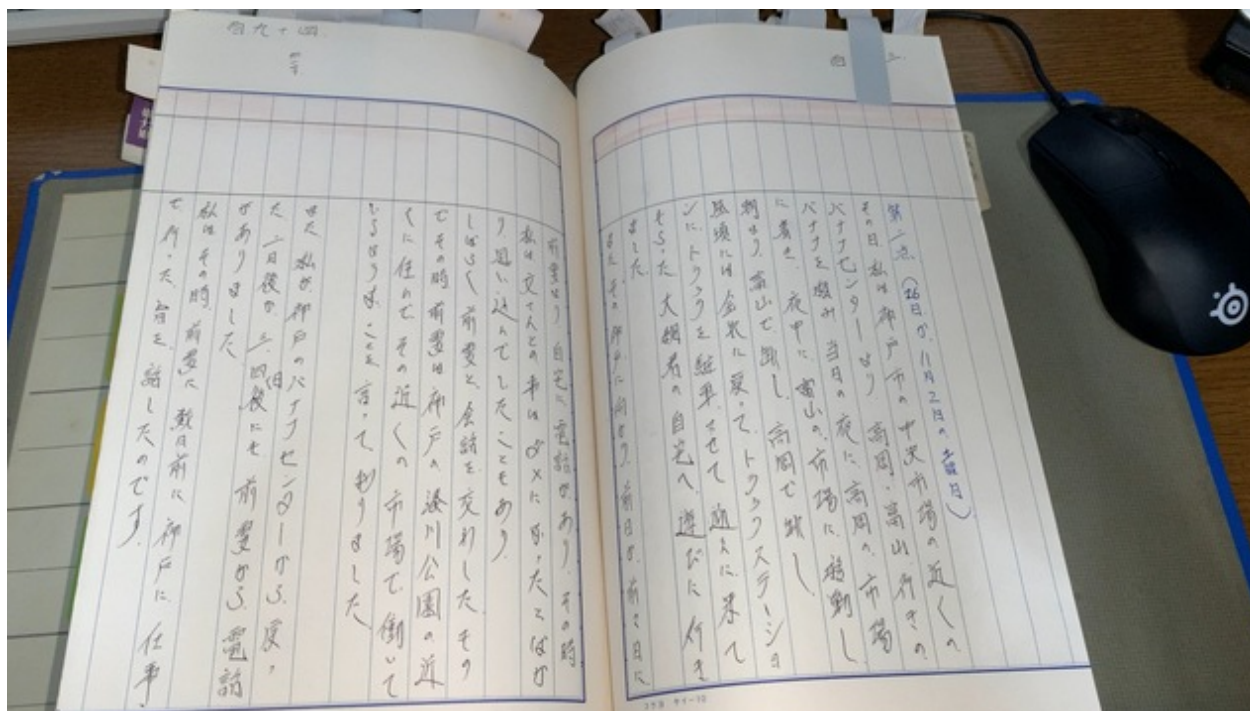 第二点 (26日か11月2日の土曜日)
その日私は神戸市の中央市場の近くの
バナナセンターより 高岡・富山行きの
バナナを積み 当日の夜に高岡の市場
に着き、夜中に富山の市場に移動し
朝より富山で卸し 高岡で卸し
昼頃には金沢に戻って、トラックステーショ
ンにトラックを駐車させて 迎えに来て
もらった 大親者の自宅へ遊びに行き
ました
またその神戸に向かう前日か、前々日に
前妻より自宅に電話があり、その時
私は文さんとの事はダメになったとばか
り思い込んでしたこともあり
しばらく前妻と会話を交わした その
でその時前妻は神戸の湊川公園の近
くに住んで、その近くの市場で働いて
いるようなことを言って おりました
また 私が神戸のバナナセンターから戻っ
た 二日後か 三、四日後にも前妻から電話
がありました
私はその時、前妻に数日前に神戸に仕事
で行った旨を、話したのです。